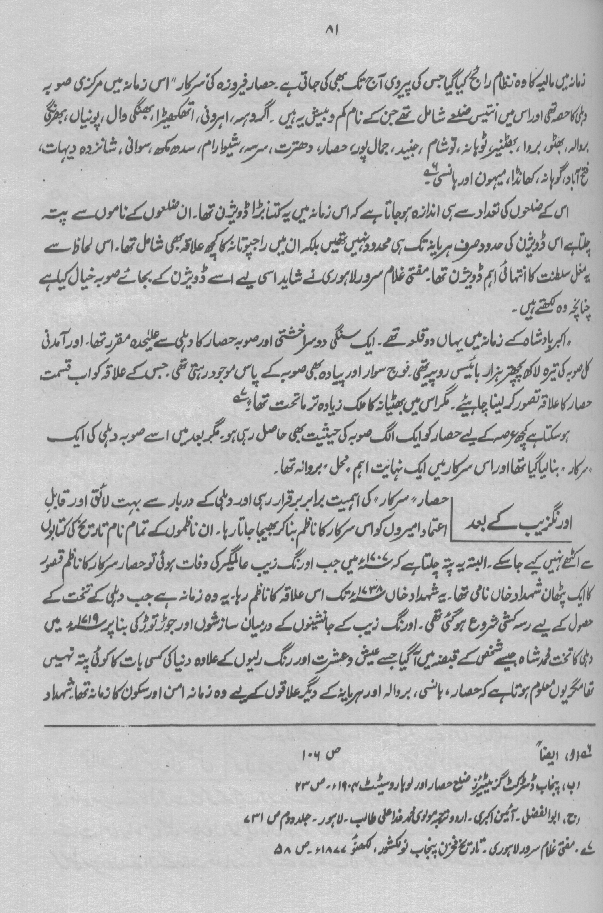 ۸۱
زمانہ میں مالیہ کا وہ نظام رائج کیا گیا جس کی پیروی آج تک بھی کی جاتی ہے۔ حصار فیروزہ کی سرکار "اس زمانہ میں مرکزی صوبہ
دہلی کا حصہ تھی اور اس میں انتیس ضلعے شامل تھے جن کے نام کم و بیش یہ ہیں۔ اگروہہ، اہرونی، اٹھکھیڑا، بھنگی وال، پونیاں، بھڑنگی
بروالہ، بھٹو، بروا، بھٹنیر، ٹوہانہ، توشام، جنید، جمال پور، حصار، دھترت، سرسہ، شیوارام، سدھ مکھ، سوانی، شانزدہ دیہات،
فتح آباد، گوہانہ، کھانڈا، میہون اور ہانسی ۶؎
اس کے ضلعوں کی تعداد سے ہی اندازہ ہو جاتا ہے کہ اس زمانہ میں یہ کتنا بڑا ڈویژن تھا۔ ان ضلعوں کے ناموں سے پتہ
چلتا ہے اس ڈویژن کی حدود صرف ہریانہ تک ہی محدود نہیں تھیں بلکہ ان میں راجپوتانہ کا کچھ علاقہ بھی شامل تھا۔ اس لحاظ سے
یہ مغل سلطنت کا انتہائی اہم ڈویژن تھا۔ مفتی غلام سرور لاہوری نے شاید اسی لیے اسے ڈویژن کے بجائے صوبہ خیال کیا ہے
چنانچہ وہ لکھتے ہیں۔
"اکبر بادشاہ کے زمانہ میں یہاں دو قلعہ تھے۔ ایک سنگی دوسرا خشتی اور صوبہ حصار کا دہلی سے علیٰحدہ مقرر تھا۔ اور آمدنی
کل صوبہ کی تیرہ لاکھ پچھتر ہزار بائیس روپیہ تھی۔ فوج سوار اور پیادہ بھی صوبہ کے پاس موجود رہتی تھی۔ جس کے علاقہ کو اب قسمت
حصار کا علاقہ تصور کر لینا چاہیئے۔ مگر اس میں بھٹیانہ کا ملک زیادہ تر ماتحت تھا" ۷؎
ہو سکتا ہے کچھ عرصہ کے لیے حصار کو ایک الگ صوبہ کی حیثیت بھی حاصل رہی ہو۔ مگر بعد میں اسے صوبہ دہلی کی ایک
"سرکار" بنا لیا گیا تھا اور اس سرکار میں ایک نہایت اہم "محل" بروالہ تھا۔
اورنگزیب کے بعد
حصار "سرکار" کی اہمیت برابر برقرار رہی اور دہلی کے دربار سے بہت لائق اور قابلِ
اعتماد امیروں کو اس سرکار کا ناظم بنا کر بھیجا جاتا رہا۔ ان ناظموں کے تمام نام تاریخ کی کتابوں
سے اکٹھے نہیں کیے جا سکے۔ البتہ یہ پتہ چلتا ہے کہ ۱۷۰۷ء میں جب اورنگ زیب عالمگیر کی وفات ہوئی تو حصار سرکار کا ناظم قصور
کا ایک پٹھان شہداد خاں نامی تھا۔ یہ شہداد خاں ۱۷۳۸ء تک اس علاقہ کا ناظم رہا۔ یہ وہ زمانہ ہے جب دہلی کے تخت کے
حصول کے لیے رسہ کشی شروع ہو گئی تھی۔ اورنگ زیب کے جانشینوں کے درمیان سازشوں اور جوڑ توڑ کی بنا پر ۱۷۱۹ء میں
دہلی کا تخت محمد شاہ جیسے شخص کے قبضہ میں آ گیا جسے عیش و عشرت اور رنگ رلیوں کے علاوہ دنیا کی کسی بات کا کوئی پتہ نہیں
تھا مگر یوں معلوم ہوتا ہے کہ حصار، ہانسی، بروالہ اور ہریانہ کے دیگر علاقوں کے لیے وہ زمانہ امن اور سکون کا زمانہ تھا۔ شہداد
۶؎ (ا)، ایضاً ص ۱۰۶
(ب)، پنجاب ڈسٹرکٹ گزیٹیئرز ضلع حصار اور لوہارو سٹیٹ ۱۹۰۴ء۔ ص ۲۳
(ج)، ابوالفضل۔ آئین اکبری۔ اردو ترجمہ مولوی محمد فدا علی طالب۔ لاہور۔ جلد دوم ص ۷۳۱
۷؎۔ مفتی غلام سرور لاہوری۔ تاریخ مخزن پنجاب نولکشور، لکھنؤ ۱۸۷۷ء۔ ص ۵۸